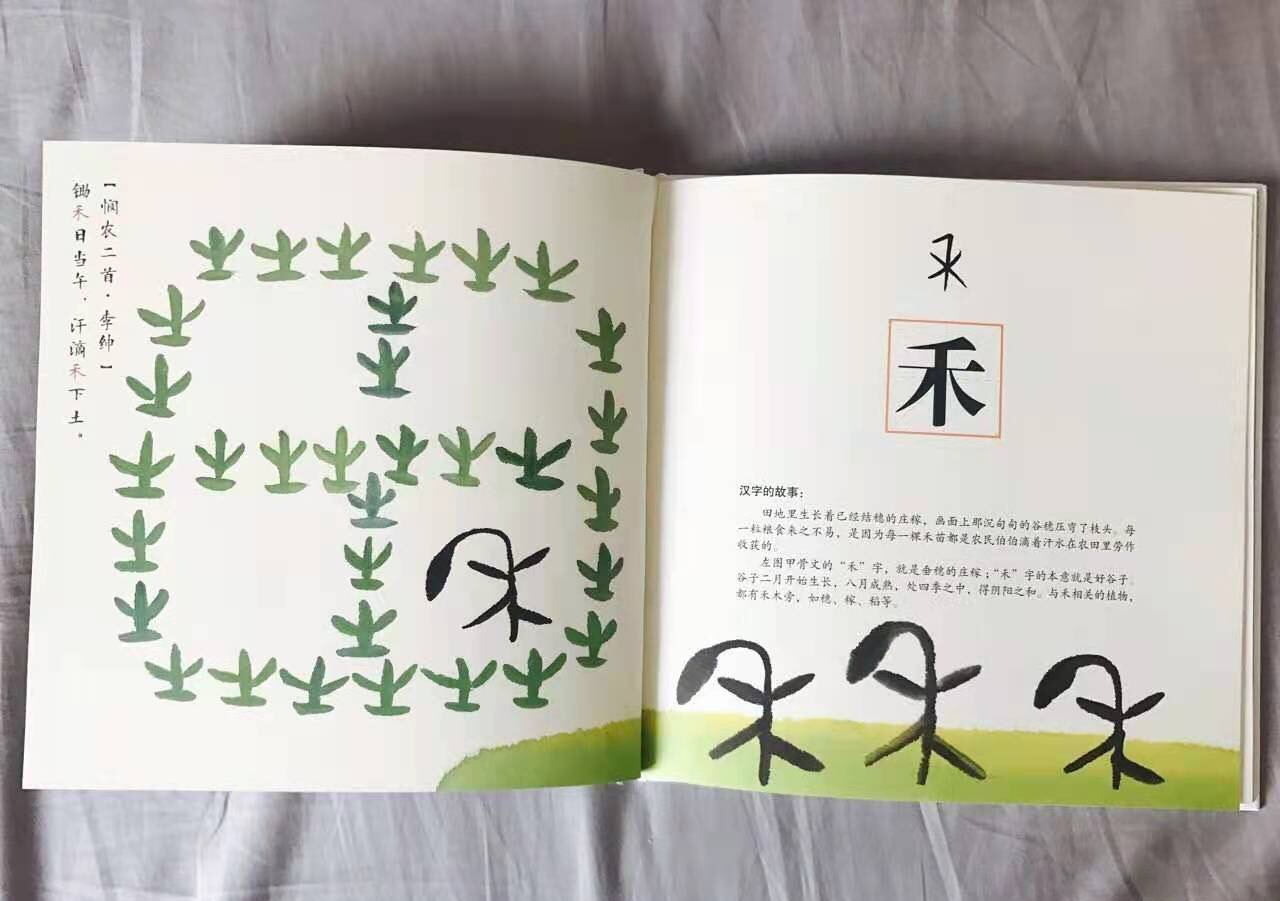 【悯农二首·李绅】
锄禾日当午，汗滴禾下土。
禾
汉字的故事：
田地里生长着已经结穗的庄稼，画面上那沉甸甸的谷穗压弯了枝头。每
一粒粮食来之不易，是因为每一棵禾苗都是农民伯伯滴着汗水在农田里劳作
收获的。
左图甲骨文的“禾”字，就是垂穗的庄稼；“禾”字的本意就是好谷子。
谷子二月开始生长，八月成熟，处四季之中，得阴阳之和。与禾相关的植物，
都有禾木旁，如穗、稼、稻等。